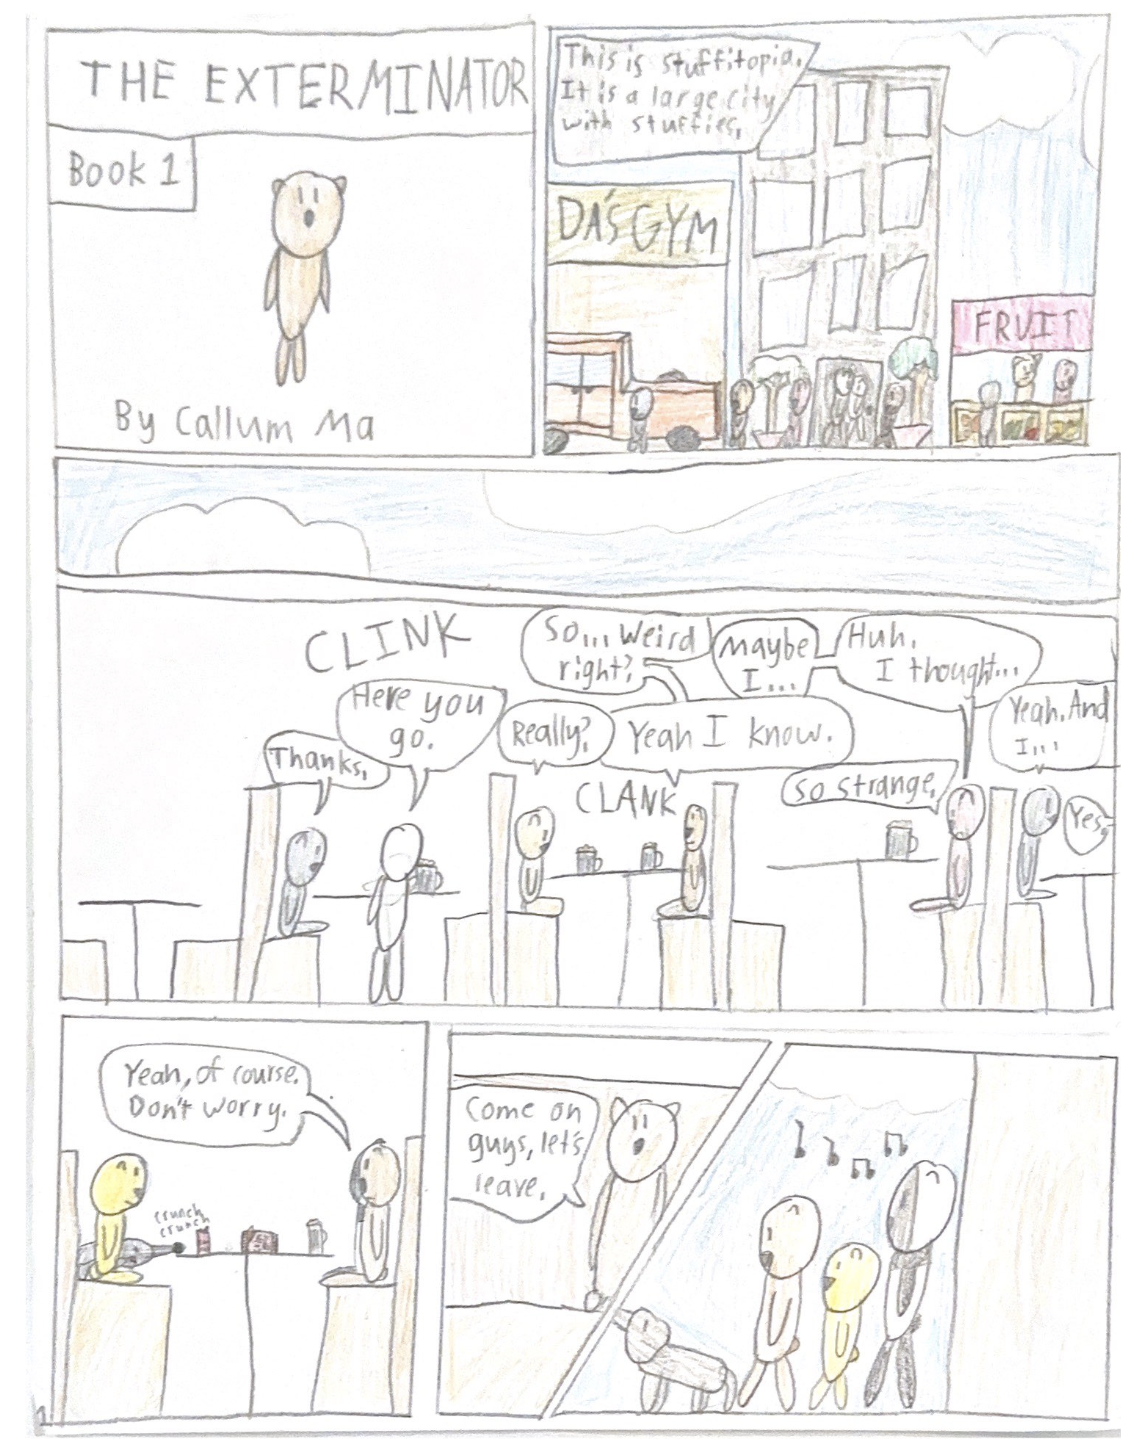 THE EXTERMINATOR
Book 1
By Callum Ma
This is stuffitopia.
It is a large city
with stuffies.
DA'S GYM
FRUIT
CLINK
Thanks.
Here you
go.
Really?
So... Weird
right?
Yeah I know.
CLANK
Maybe
I...
Huh.
I thought...
so strange.
Yeah. And
I...
Yes.
Yeah, of course.
Don't worry.
crunch
crunch
Come on
guys, let's
leave.
1